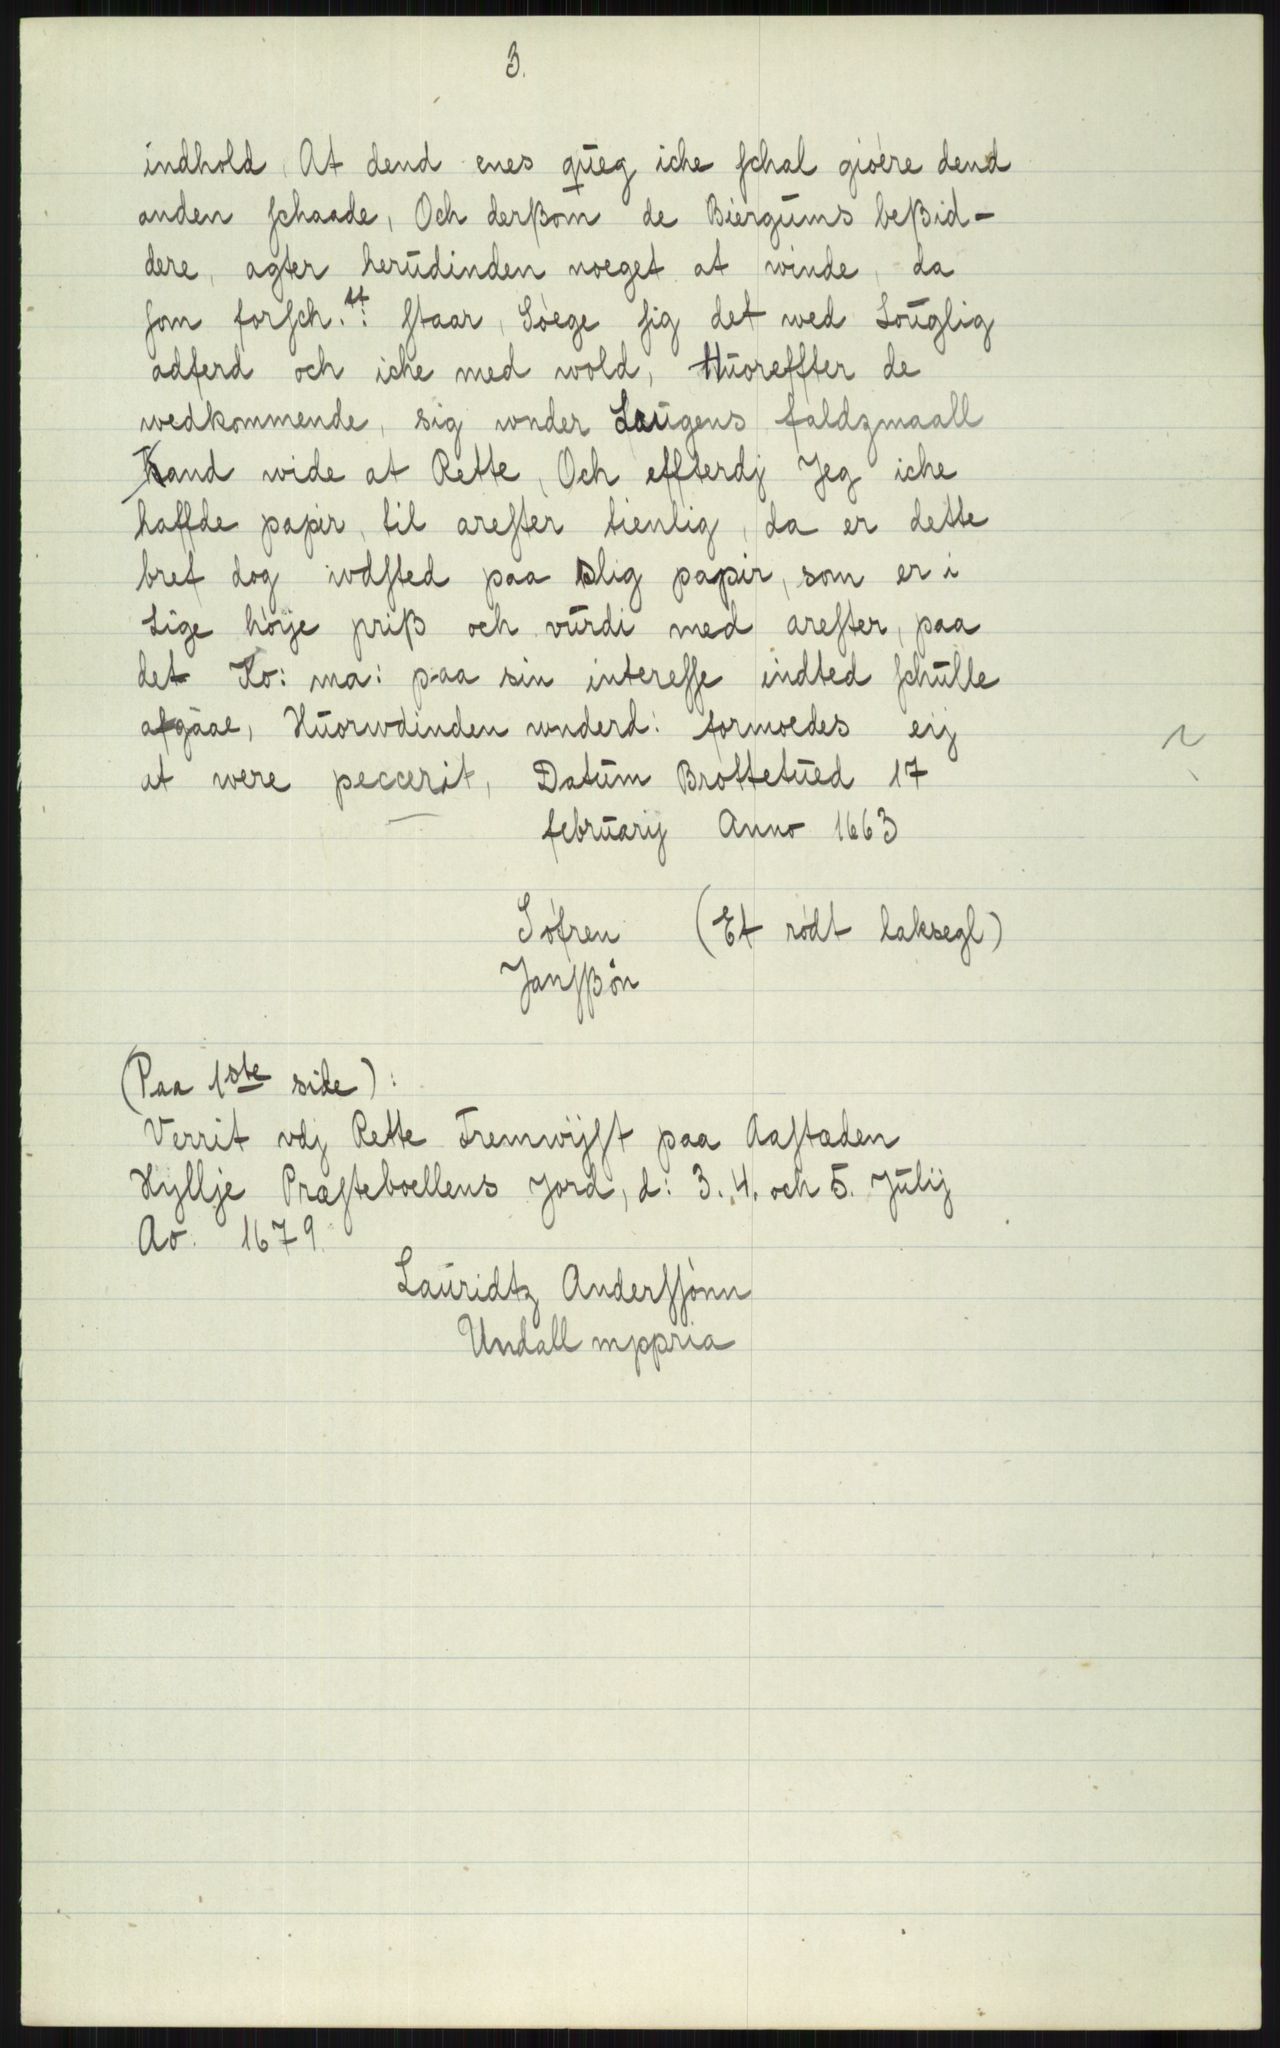 3.
indhold, At dend enes queg iche schal gioére dend
anden schaade, Och derßom de Biergums beßid-
dere, agter herudinden noeget at winde, da
som forsch.tt: staar, Sòege sig det wed Louglig
adferd och iche med wold, Huoreffter de
wedkommende, sig wnder Laugens faldzmaall
Kand wide at Rette, Och effterdj Jeg iche
haffde papir, til arester tienlig, da er dette
bref dog wdsted paa slig papir, som er i
Lige hòije priß och vurdi med arester, paa
det Ko: ma: paa sin interesse indted schulle
afgaae, Huorwdinden wnderd: formoedes eij
at were peccerit, Datum Brottetued 17
februarij Anno 1663
Sòfren (Et rödt laksegl)
Jansßön
(Paa 1ste side):
Verrit vdj Rette Fremwijst paa Aastaden
Hyllje Præsteboellens Jord, d: 3. 4. och 5. Julij
Ao. 1679.
Lauridtz Anderssònn
Undall mppria